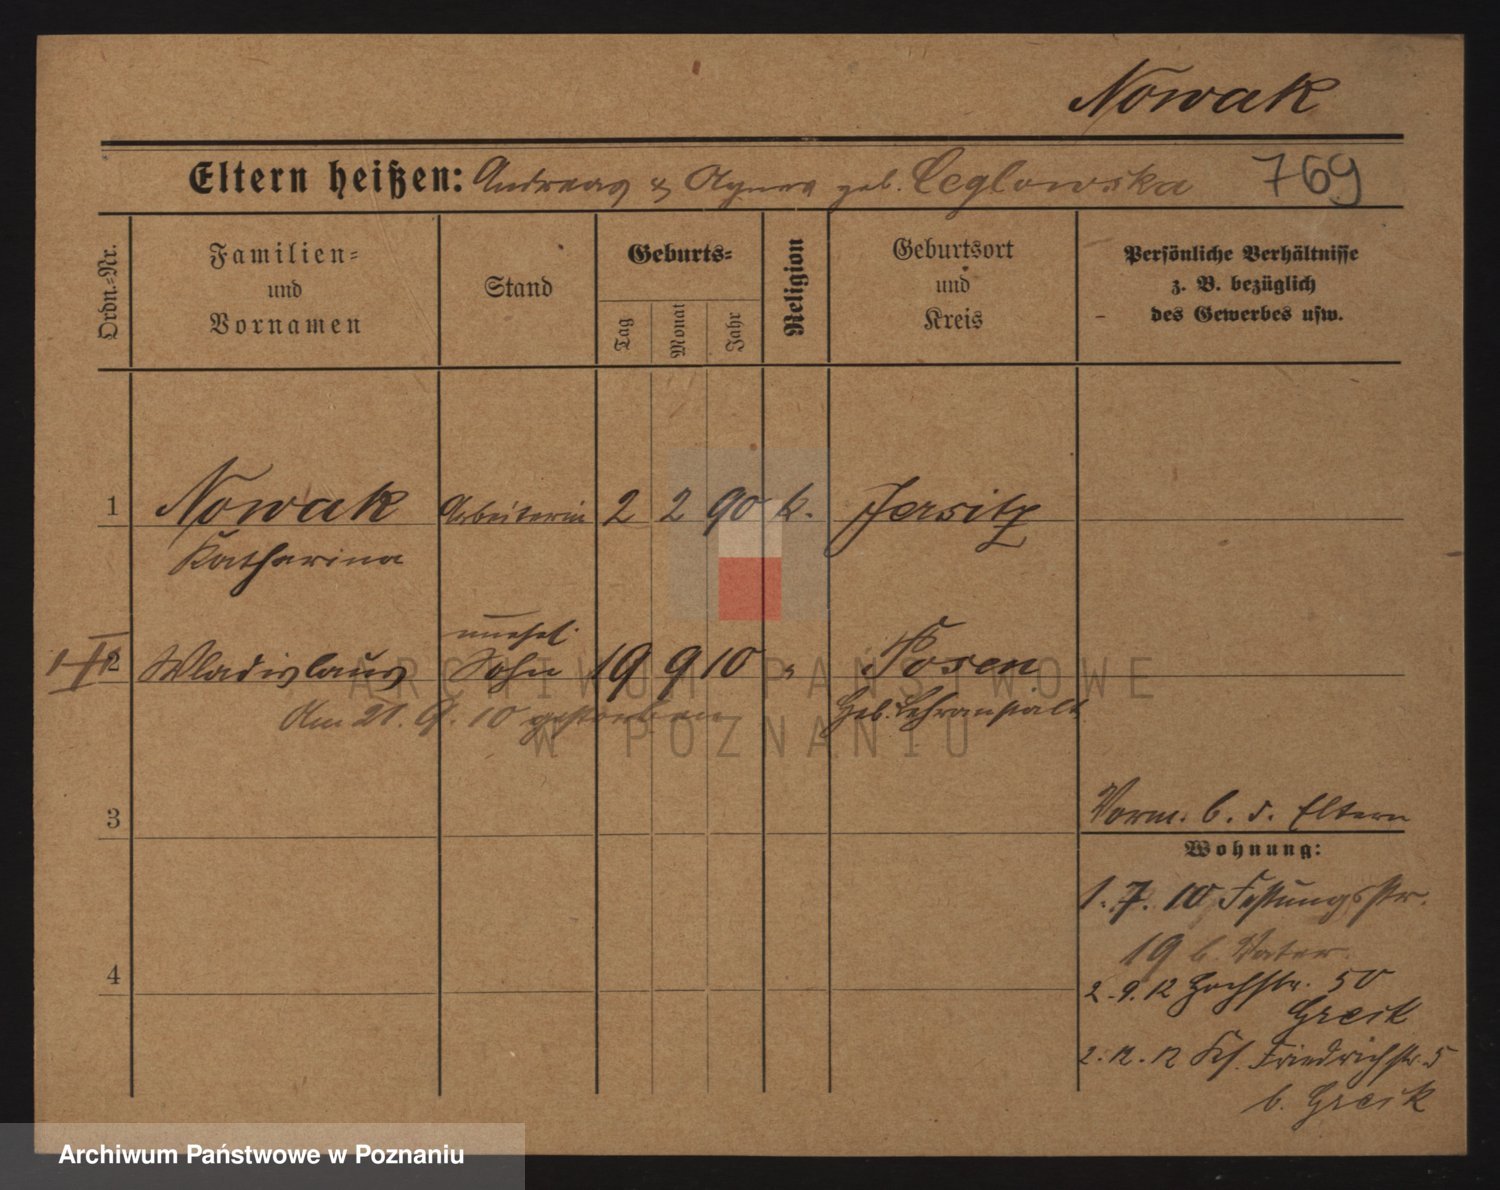 Nowak
Eltern heißen: Andreas & Agnes geb. Ceglowska 769
Ordn.-Nr.
Familien-
und
Vornamen
Stand
Geburts-
Tag
Monat
Jahr
Religion
Geburtsort
und
Kreis
Persönliche Verhältnisse
z. B. bezüglich
des Gewerbes usw.
1 Nowak Arbeiterin 2 2 90 k. Jersitz
Katharina
unehel.
2 Wladislaus Sohn 19 9 10 " Posen
Am 21. 9. 10 gestorben Heb. Lehranstalt
3
Vorm. b. d. Eltern
Wohnung:
1. 7. 10 Festungsstr.
19 b. Vater.
4
2. 9. 12 Hochstr. 50
Greik
2. 12. 12 Friedrichstr. 5
b. Greik
ARCHIWUM PAŃSTWOWE
W POZNANIU
Archiwum Państwowe w Poznaniu